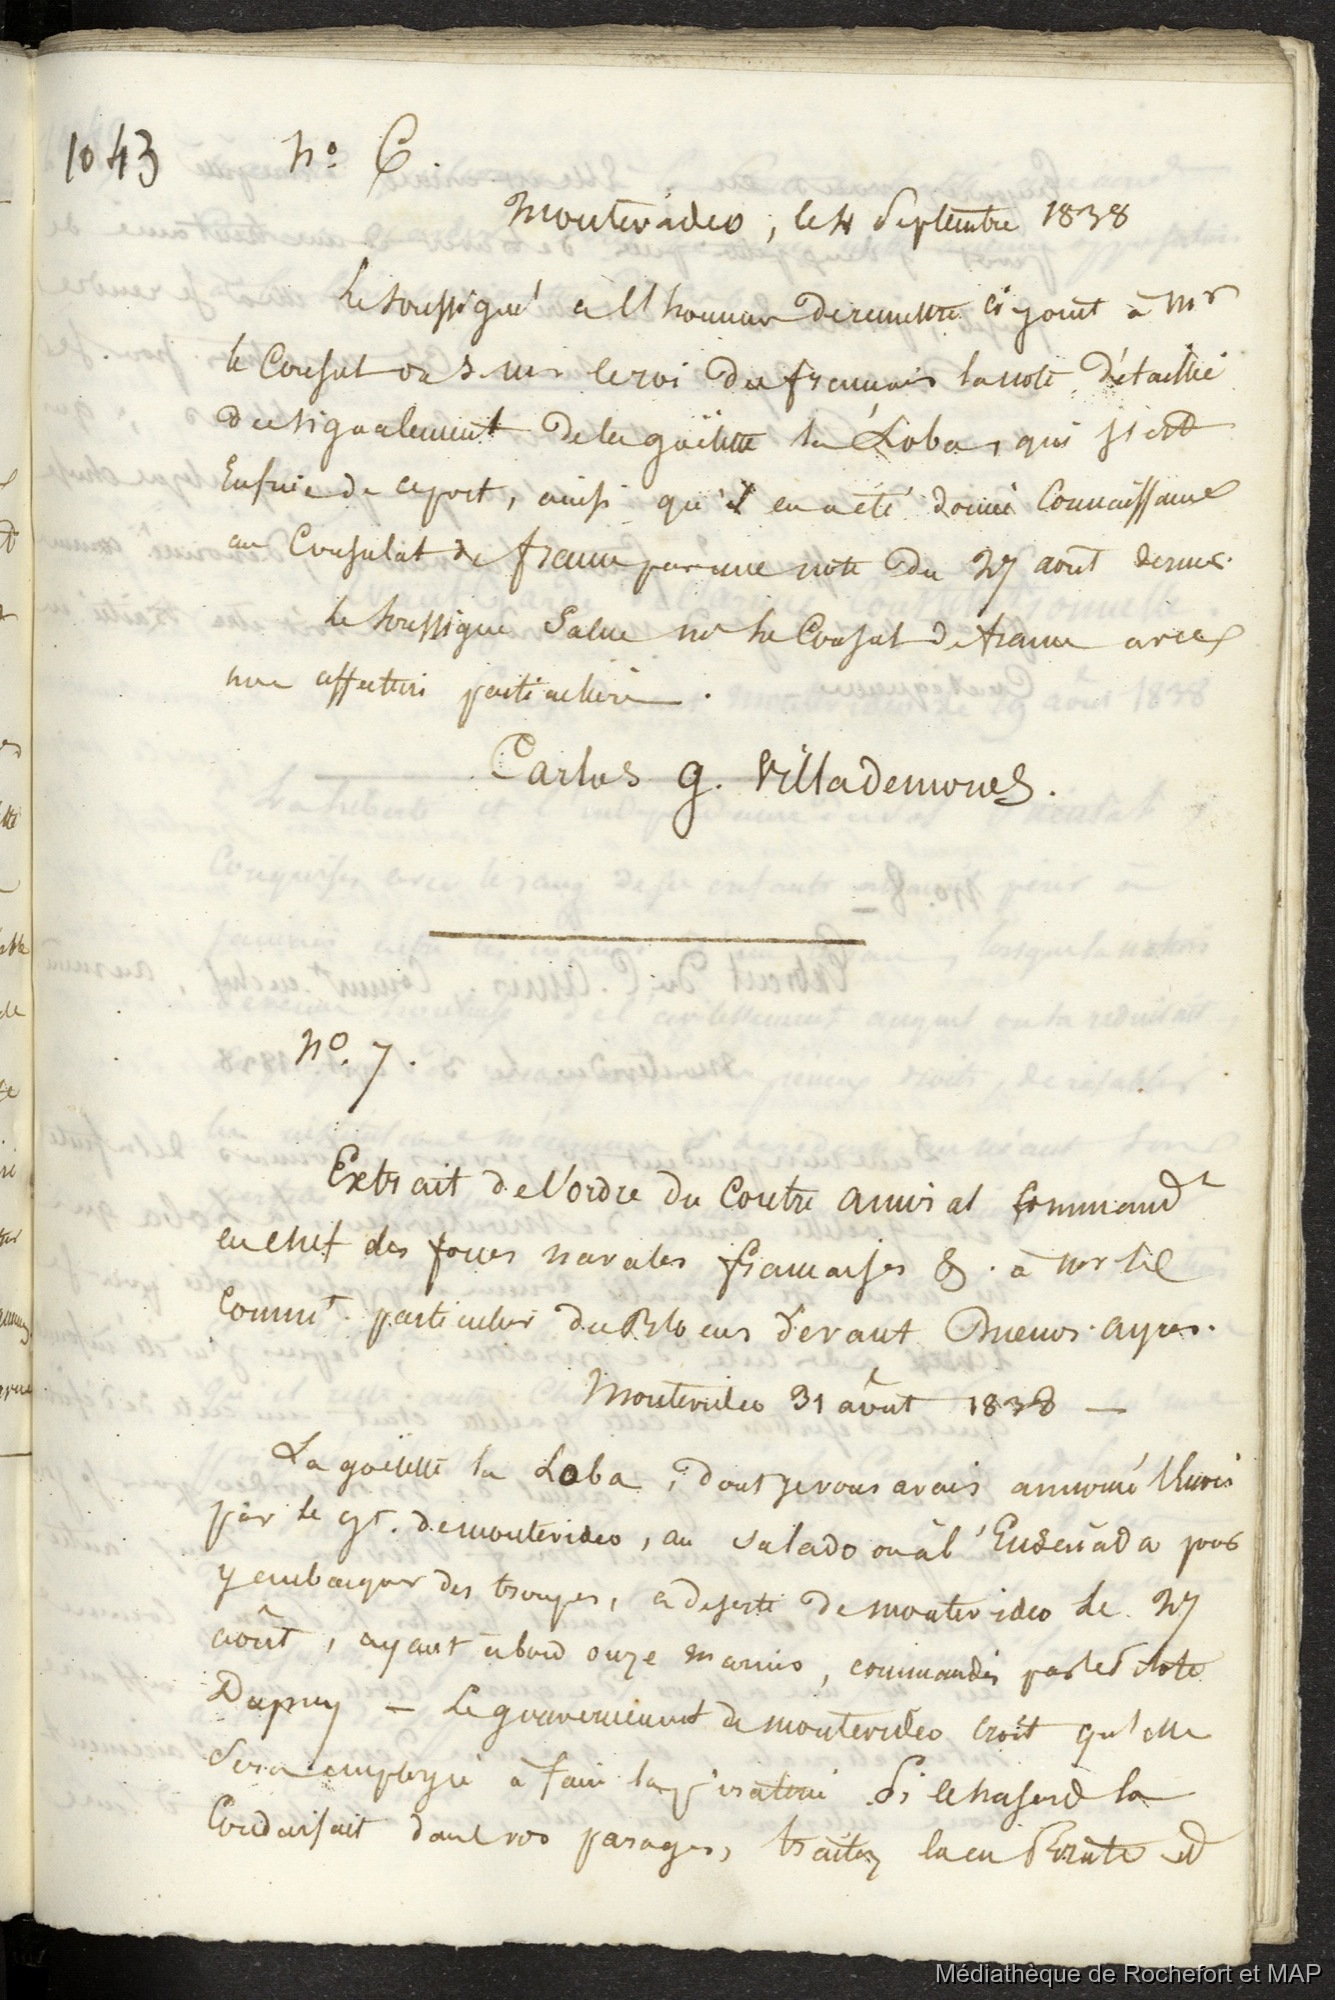 1043
No. 6.
Montevideo, le 4 Septembre 1838
Le soussigné a l'honneur de remettre ci joint à Mr
le Consul de S. M. le roi des français la note détaillée
du signalement de la goëlette la Loba, qui s'est
Enfuie de ce port, ainsi qu'il en a été donné connaissance
au Consulat de france par une note du 27 août dernier.
Le soussigné Salue Mr le Consul de france avec
une affection particulière.
Carlos G. Villademoros.
No. 7.
Extrait de l'ordre du Contre amiral Command.t
en chef des forces navales françaises &. à Mr le
Comm.t particulier du Blocus devant Buenos-ayres.
Montevideo 31 août 1838 —
La goëlette la Loba, dont je vous avais annoncé l'envoi
par le gt. de montevideo, au Salado ou à l'Ensenada pour
y embarquer des troupes, a déserté de montevideo le 27
août, ayant à bord onze marins, commandés par le pilote
Dupuy — Le gouvernement de montevideo croit qu'elle
Sera employée à faire la piraterie. Si le hasard la
Conduisait dans vos parages, traitez la en Pirate et
Médiathèque de Rochefort et MAP